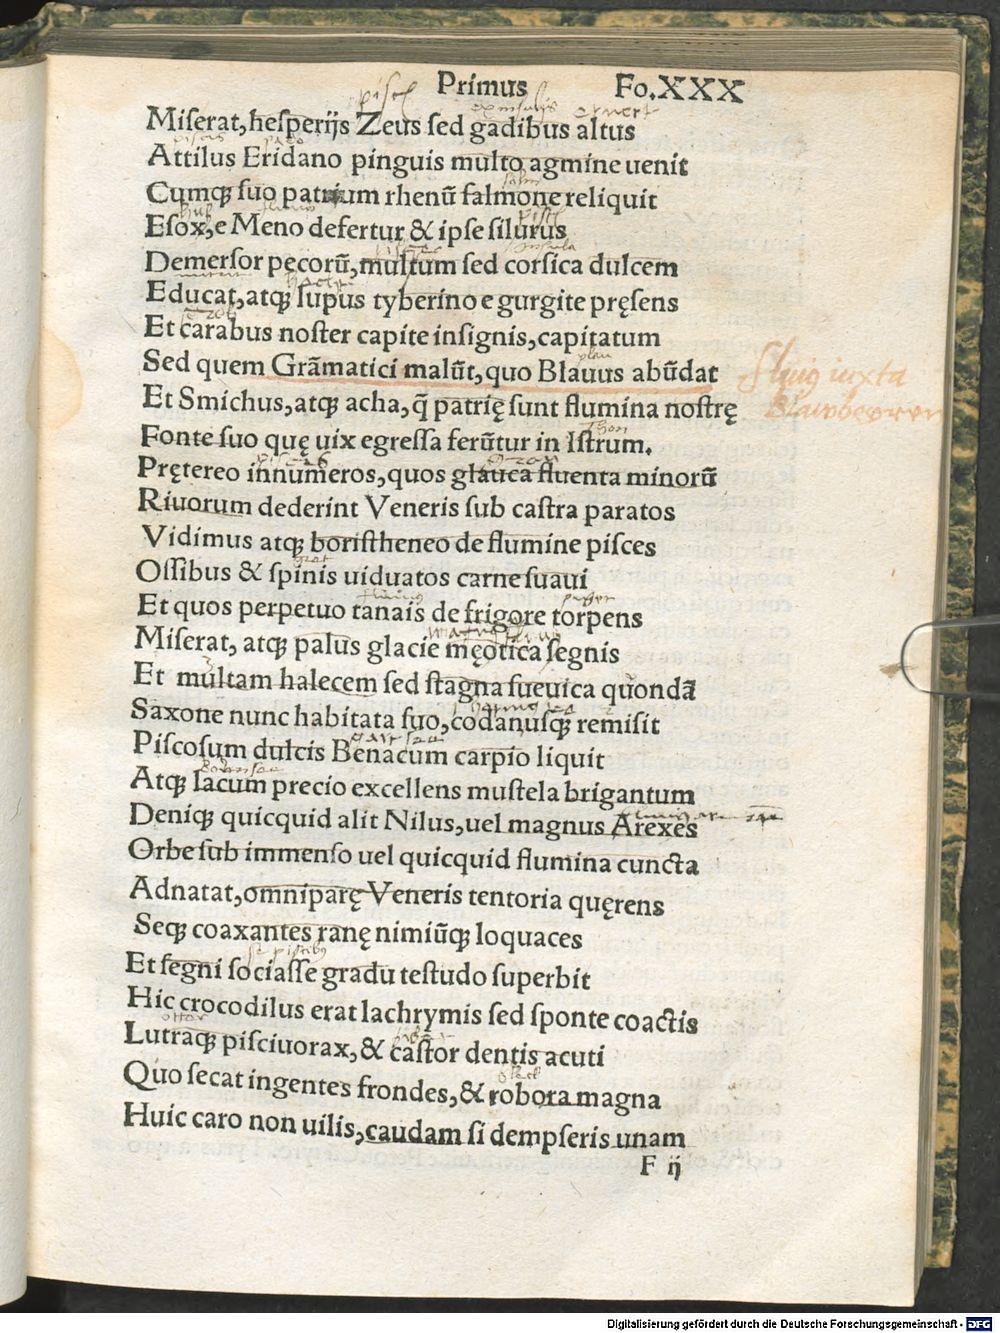 Primus Fo.XXX
Miserat,hesperijs Zeus sed gadibus altus
Attilus Eridano pinguis multo agmine uenit
Cumq̃ suo patrium rhenũ salmone reliquit
Esox,e Meno defertur & ipse silurus
Demersor pecorũ,multum sed corsica dulcem
Educat,atq̃ lupus tyberino e gurgite pręsens
Et carabus noster capite insignis,capitatum
Sed quem Grãmatici malũt,quo Blauus abũdat
fluuius iuxta
Et Smichus,atq̃ acha,q̃ patrię sunt flumina nostrę
Fonte suo quę uix egressa ferũtur in Istrum.
Pretereo innumeros,quos glauca fluenta minorũ
Riuorum dederint Veneris sub castra paratos
Vidimus atq̃ boristheneo de flumine pisces
Ossibus & spinis uiduatos carne suaui
Et quos perpetuo tanais de frigore torpens
Miserat, atq̃ palus glacie męotica segnis
Et multam halecem sed stagna sueuica quondã
Saxone nunc habitata suo,codanusq̃ remisit
Piscosum dulcis Benacum carpio liquit
Atq̃ lacum precio excellens mustela brigantum
Deniq̃ quicquid alit Nilus,uel magnus Arexes
Orbe sub immenso uel quicquid flumina cuncta
Adnatat,omniparę Veneris tentoria quęrens
Seq̃ coaxantes ranę nimiũq̃ loquaces
Et segni sociasse gradu testudo superbit
Hic crocodilus erat lachrymis sed sponte coactis
Lutraq̃ pisciuorax,& castor dentis acuti
Quo secat ingentes frondes,& robora magna
Huic caro non uilis,caudam si dempseris unam
F ij
Digitalisierung gefördert durch die Deutsche Forschungsgemeinschaft - DFG